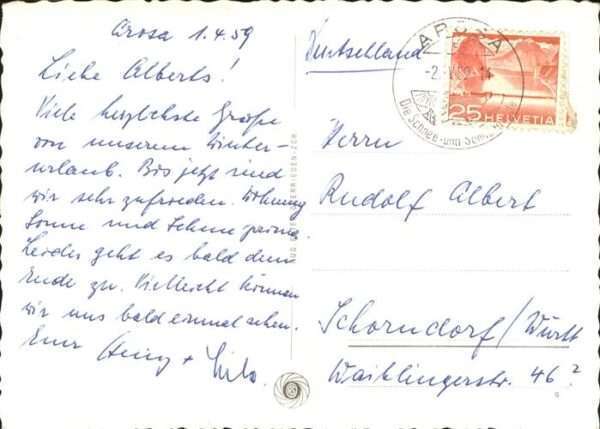 Arosa 1.4.59
Liebe Alberts!
Viele herzlichste Grüße
von unserem Winter-
urlaub. Bis jetzt sind
wir sehr zufrieden. Wohnung
Sonne und Schnee prima.
Leider geht es bald dem
Ende zu. Vielleicht können
wir uns bald einmal sehen.
Eure Heinz +
Deutschland
AROSA
Die Schnee- und
25 HELVETIA
Herrn
Rudolf Albert
Schorndorf/Württ
Waiblingerstr. 46